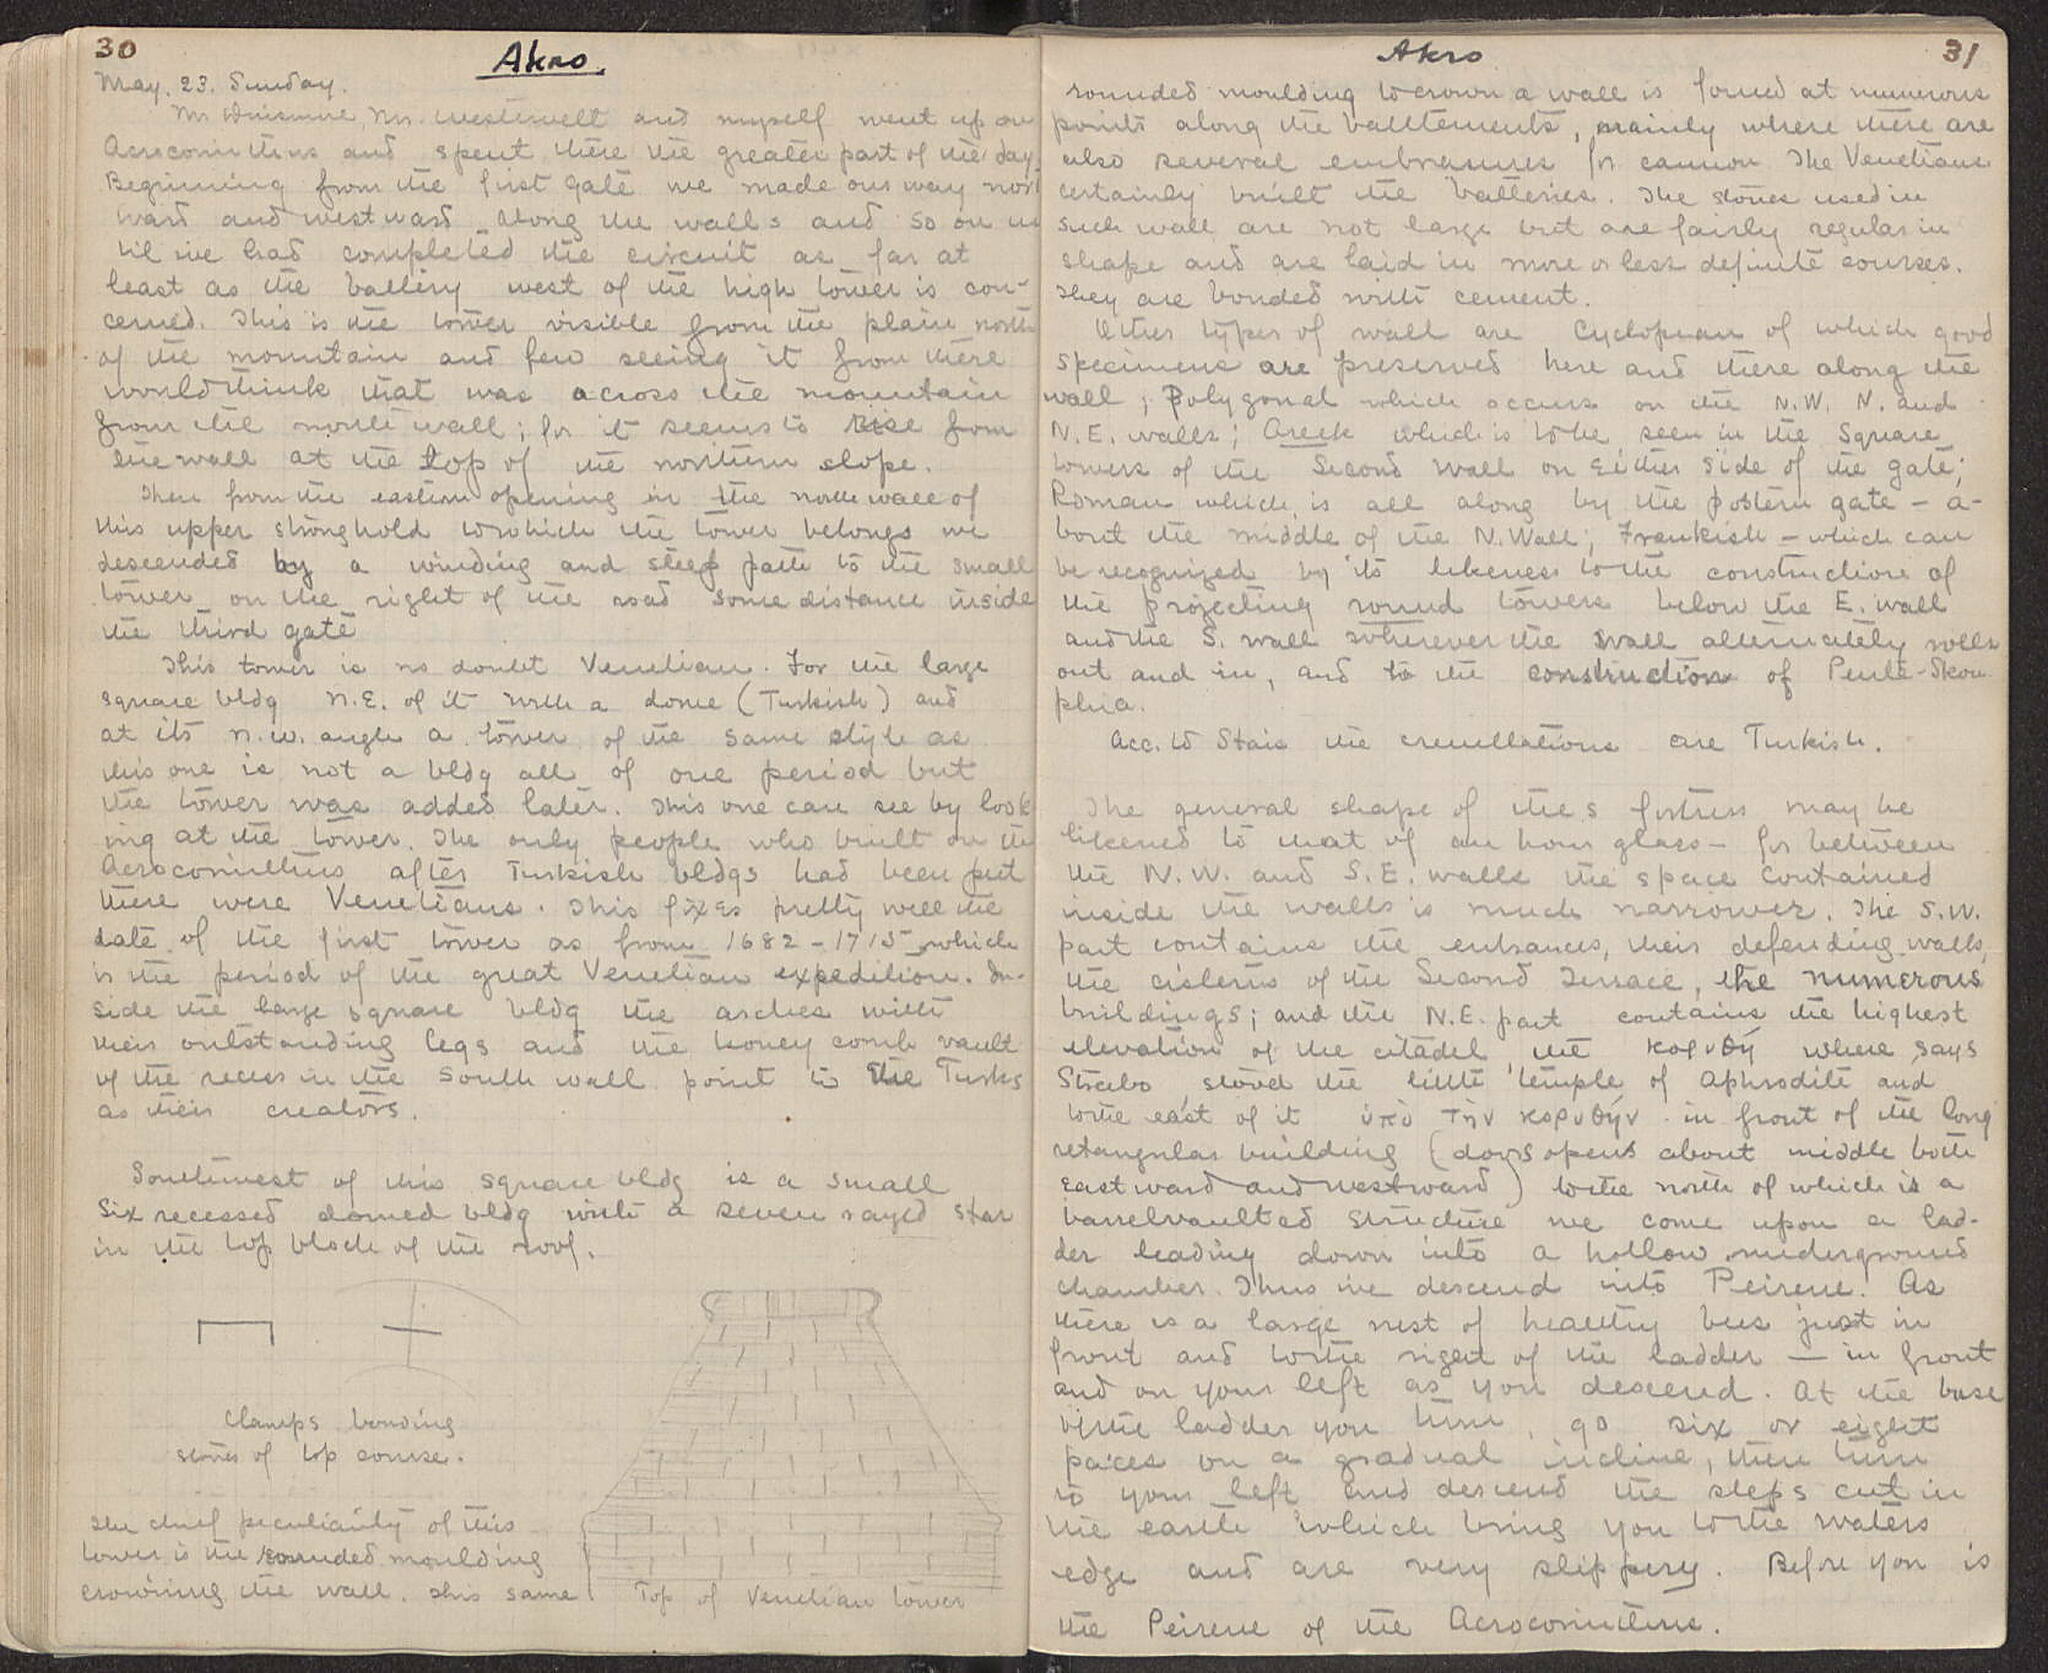 30
Akro.
May. 23. Sunday.
Mr Dinsmoor, Mr. Westervelt and myself went up on
Acrocorinthus and spent there the greater part of the day.
Beginning from the first gate we made our way north
ward and westward along the walls and so on un
til we had completed the circuit as far at
least as the battery west of the high tower is con-
cerned. This is the tower visible from the plain north
of the mountain and few seeing it from there
would think that was across the mountain
from the north wall; for it seems to rise from
the wall at the top of the northern slope.
Then from the eastern opening in the north wall of
this upper stronghold to which the tower belongs we
descended by a winding and steep path to the small
tower on the right of the road some distance inside
the third gate
This tower is no doubt Venetian. For the large
square bldg N.E. of it with a dome (Turkish) and
at its N.W. angle a tower of the same style as
this one is not a bldg all of one period but
the tower was added later. This one can see by look
ing at the tower. The only people who built on the
Acrocorinthus after Turkish bldgs had been put
there were Venetians. This fixes pretty well the
date of the first tower as from 1682-1715 which
is the period of the great Venetian expedition. In-
side the large square bldg the arches with
their outstanding legs and the honey comb vault
of the recess in the south wall point to the Turks
as their creators.
Southwest of this square bldg is a small
six recessed domed bldg with a seven rayed star
in the top block of the roof.
Clamps bonding
stones of top course.
The chief peculiarity of this
tower is the rounded moulding
crowning the wall. This same
Top of Venetian tower
Akro
31
rounded moulding to crown a wall is found at numerous
points along the battlements, mainly where there are
also several embrasures for cannon The Venetians
certainly built the batteries. The stones used in
such wall are not large but are fairly regular in
shape and are laid in more or less definite courses.
They are bonded with cement.
Other types of wall are Cyclopean of which good
specimens are preserved here and there along the
wall; Polygonal which occurs on the N.W. N. and
N.E. walls; Greek which is to be seen in the Square
towers of the Second Wall on either side of the gate;
Roman which is all along by the postern gate - a-
bout the middle of the N. Wall; Frankish - which can
be recognized by its likeness to the constructions of
the projecting round towers below the E. wall
and the S. wall wherever the wall alternately rolls
out and in, and to the construction of Pente-Skou
phia.
Acc. to Stais the crenellations are Turkish.
The general shape of the s fortress may be
likened to that of an hour glass - for between
the N.W. and S.E. walls the space contained
inside the walls is much narrower. The S.W.
part contains the entrances, their defending walls,
the cisterns of the Second Terrace, the numerous
buildings; and the N.E. part contains the highest
elevation of the citadel, the κορυθή where says
Strabo, stood the little temple of Aphrodite and
to the east of it ὑπὸ τὴν κορυθήν in front of the long
retangular building (doors opens about middle both
eastward and westward) to the north of which is a
barrelvaulted structure we come upon a lad-
der leading down into a hollow underground
chamber. Thus we descend into Peirene. As
there is a large nest of healthy bees just in
front and to the right of the ladder — in front
and on your left as you descend. At the base
of the ladder you turn, go six or eight
paces on a gradual incline, then turn
to your left and descend the steps cut in
the earth which bring you to the waters
edge and are very slippery. Before you is
the Peirene of the Acrocorinthus.